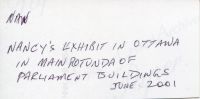 NAN
NANCY'S EXHIBIT IN OTTAWA
IN MAIN ROTUNDA OF
PARLIAMENT BUILDINGS
JUNE 2001